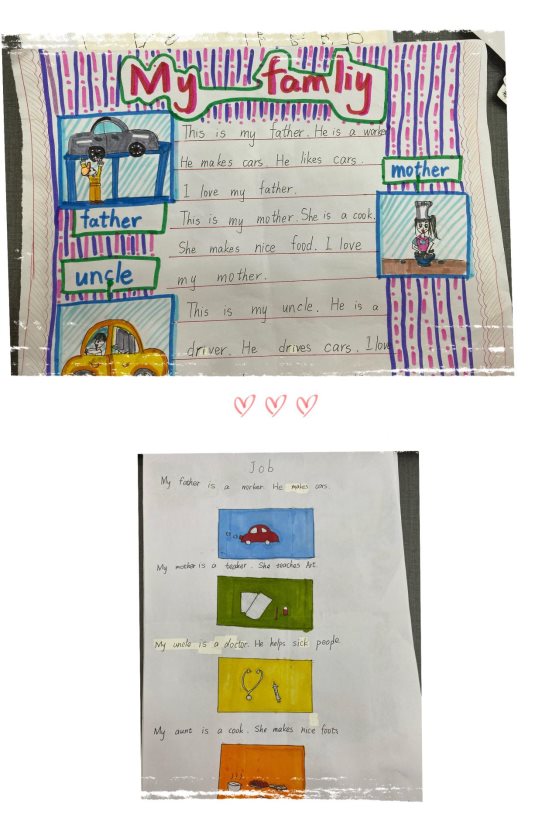 My famliy
This is my father. He is a worker
He makes cars. He likes cars.
I love my father.
father
mother
This is my mother. She is a cook.
She makes nice food. I love
my mother.
uncle
This is my uncle. He is a
driver. He drives cars. I love
Job
My father is a worker. He makes cars.
My mother is a teacher. She teaches Art.
My uncle is a doctor. He helps sick people.
My aunt is a cook. She makes nice foots